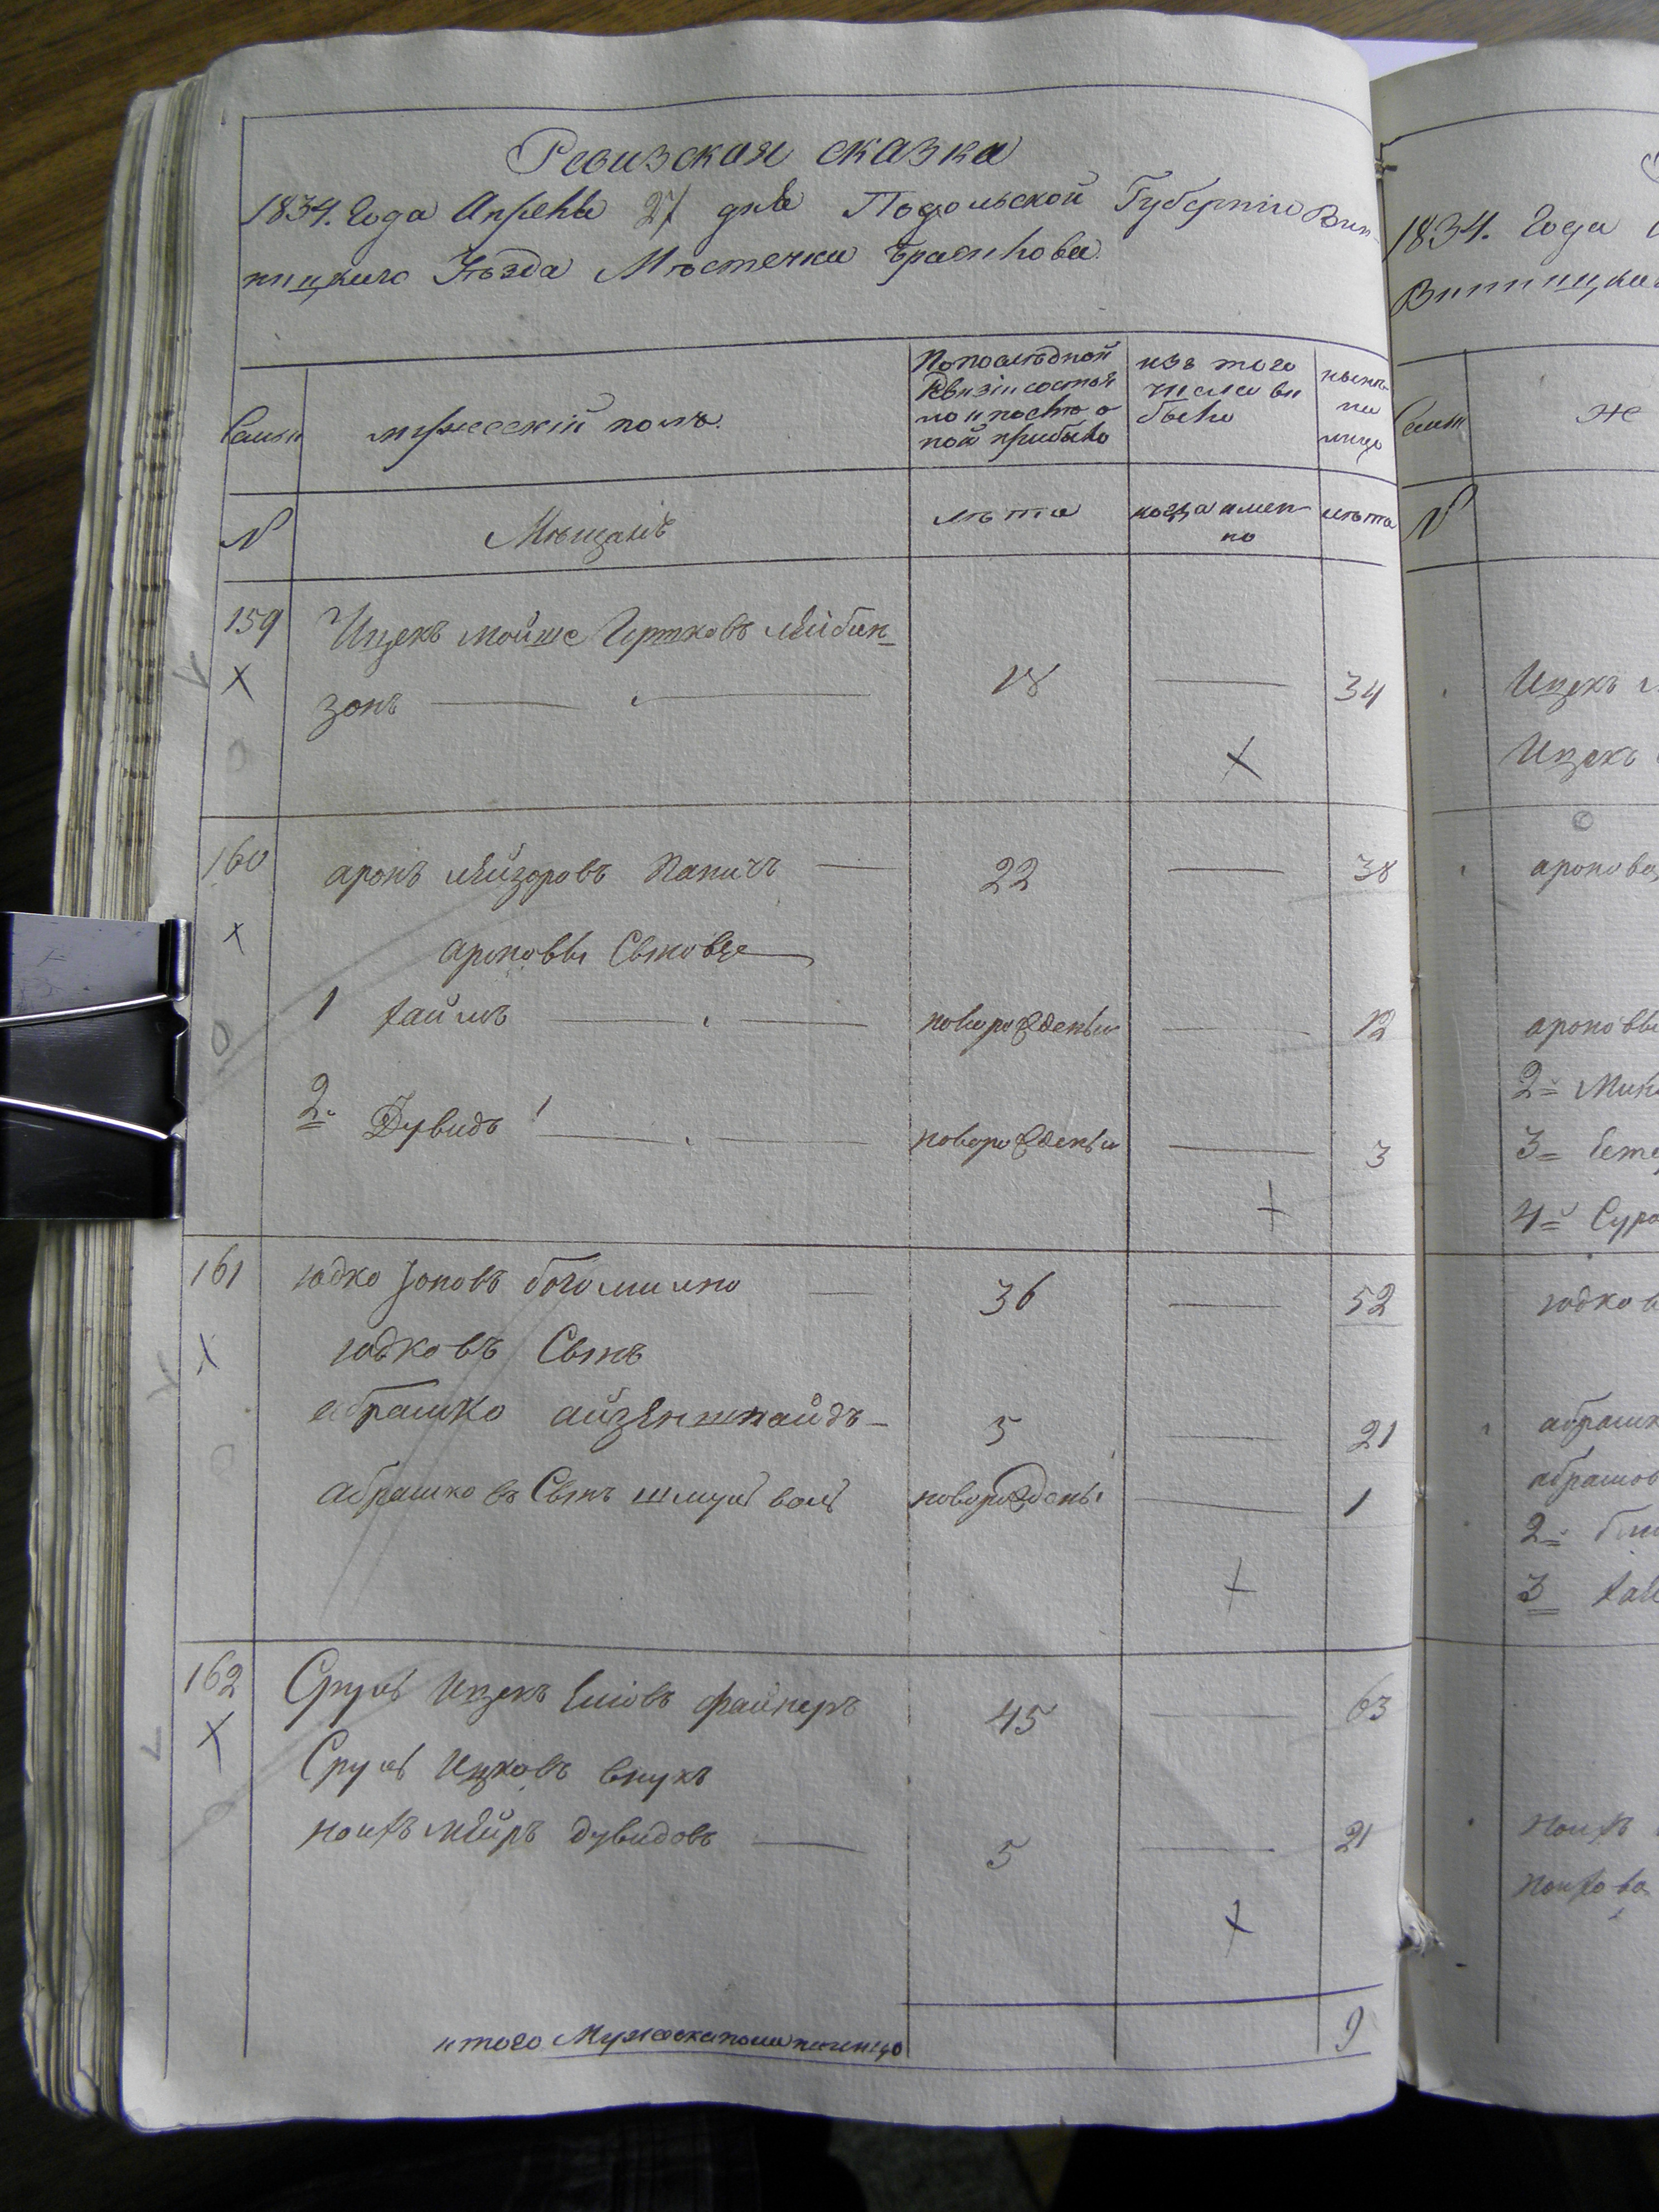 Ревизская сказка
1834. Года Апреля 27 дня Подольской Губернiи Вин-
ницкаго Уѣзда Мѣстечка Браилова.
Семьи
мужескiй полъ.
По послѣдной
Ревизiи состоя
ло и послѣ о
ной прибыло
изъ того
числа вы
было
нынѣ
на
лицо
№
Мѣщанъ
лѣта
когда имен-
но
лѣта
159 Ицекъ мойше Гертковъ лейбен-
зонъ 18 34
160 аронъ лейзоровъ 22 38
ароновы Сыновье
1 хаимъ новорожденый 12
2 Дувидъ новорожденый 3
161 юдко 36 52
юдковъ Сынъ
абрашко 5 21
абрашковъ Сынъ шмуль новорождены 1
162 Сруль Ицекъ файнеръ 45 63
Сруль Ицковъ внукъ
мейръ дувидовъ 5 21
итого Мужеска пола на лицо 9
1834. Года
Винницка
Семьи
же
№
Ицекъ
Ицекъ
аронова
ароновы
2
3
4 Сура
юдков
абрашк
абрашов
2
3